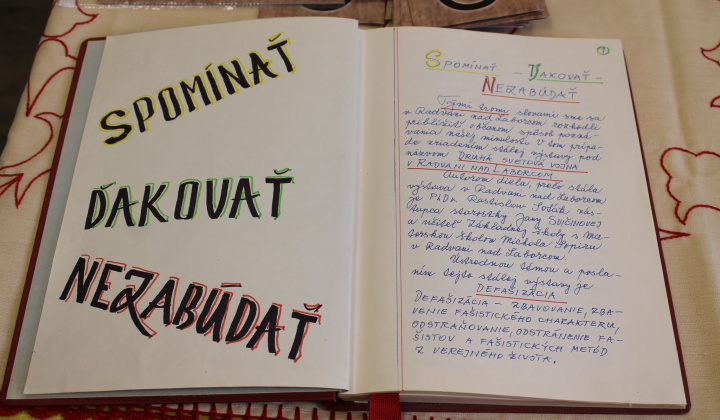 SPOMÍNAŤ
ĎAKOVAŤ
NEZABÚDAŤ
1
SPOMÍNAŤ - ĎAKOVAŤ -
NEZABÚDAŤ
Tými tromi slovami sme sa
v Radvani nad Laborcom rozhodli
priblížiť občanom spôsob pozná-
vania našej minulosti v tom prípa-
de zriadením stálej výstavy pod
názvom DRUHÁ SVETOVÁ VOJNA
V RADVANI NAD LABORCOM.
Autorom diela, prečo stála
výstava v Radvani nad Laborcom
je PhDr. Rastislav Soták nás-
tupca starostky Jany SVIČINOVEJ
a učiteľ Základnej školy s Ma-
terskou školou Michala Sopiru
v Radvani nad Laborcom.
Ústrednou témou a posla-
ním tejto stálej výstavy je
DEFAŠIZÁCIA
DEFAŠIZÁCIA - ZBAVOVANIE, ZBA-
VENIE FAŠISTICKÉHO CHARAKTERU,
ODSTRAŇOVANIE, ODSTRÁNENIE FA-
ŠISTOV A FAŠISTICKÝCH METÓD
Z VEREJNÉHO ŽIVOTA.